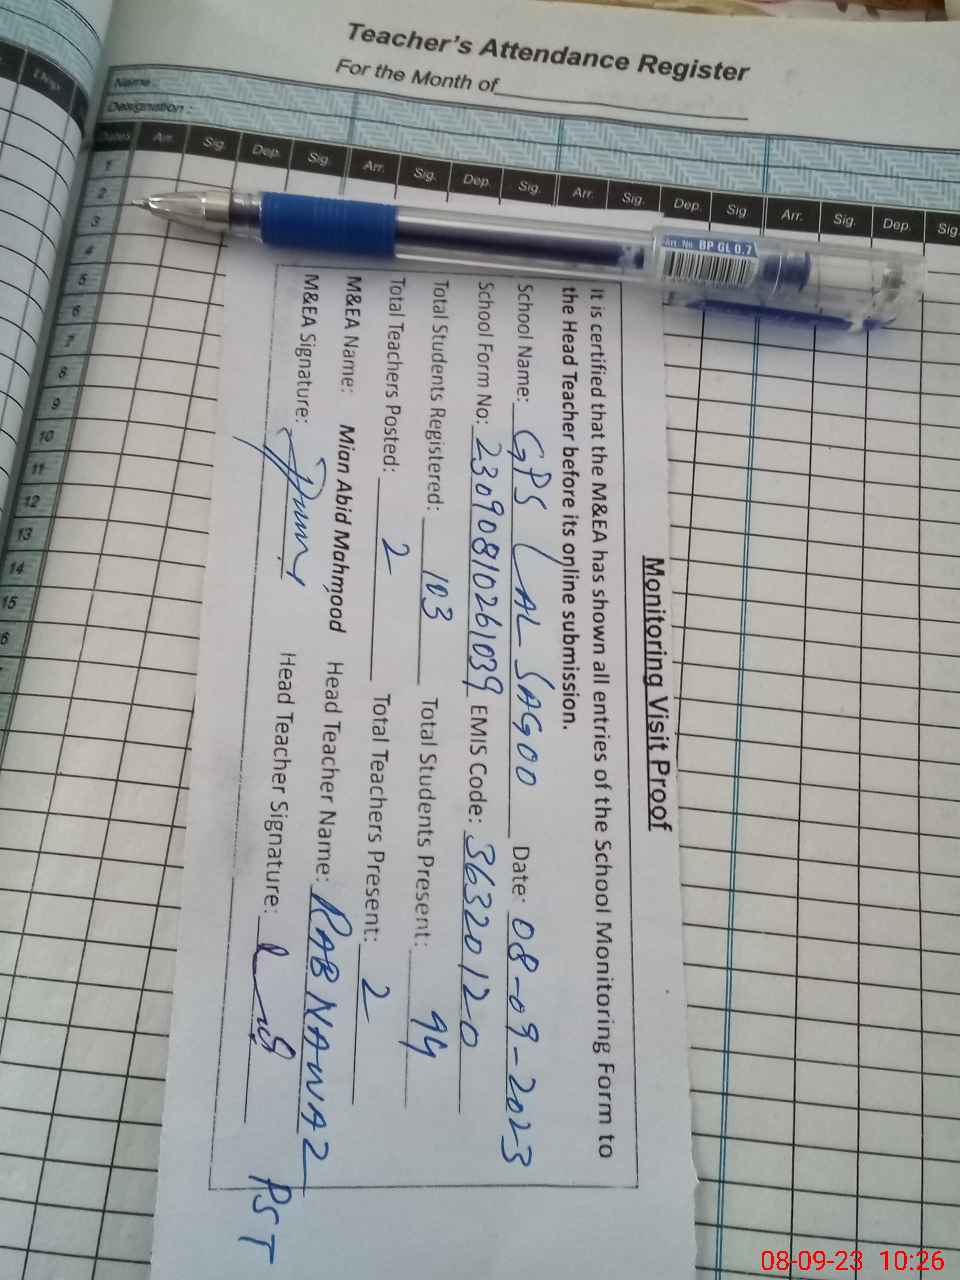 Teacher's Attendance Register
For the Month of
Name :
Designation :
Dates Arr. Sig. Dep. Sig. Arr. Sig. Dep. Sig. Arr. Sig. Dep. Sig Arr. Sig. Dep. Sig.
1
2
3
4
5
6
7
8
9
10
11
12
13
14
15
6
Art. No. BP GL 0.7
Monitoring Visit Proof
It is certified that the M&EA has shown all entries of the School Monitoring Form to
the Head Teacher before its online submission.
School Name: GPS LAL SAGOO Date: 08-09-2023
School Form No: 23090810261039 EMIS Code: 36320120
Total Students Registered: 103 Total Students Present: 94
Total Teachers Posted: 2 Total Teachers Present: 2
M&EA Name: Mian Abid Mahmood Head Teacher Name: RAB NAWAZ
M&EA Signature: Head Teacher Signature:
PST
08-09-23 10:26